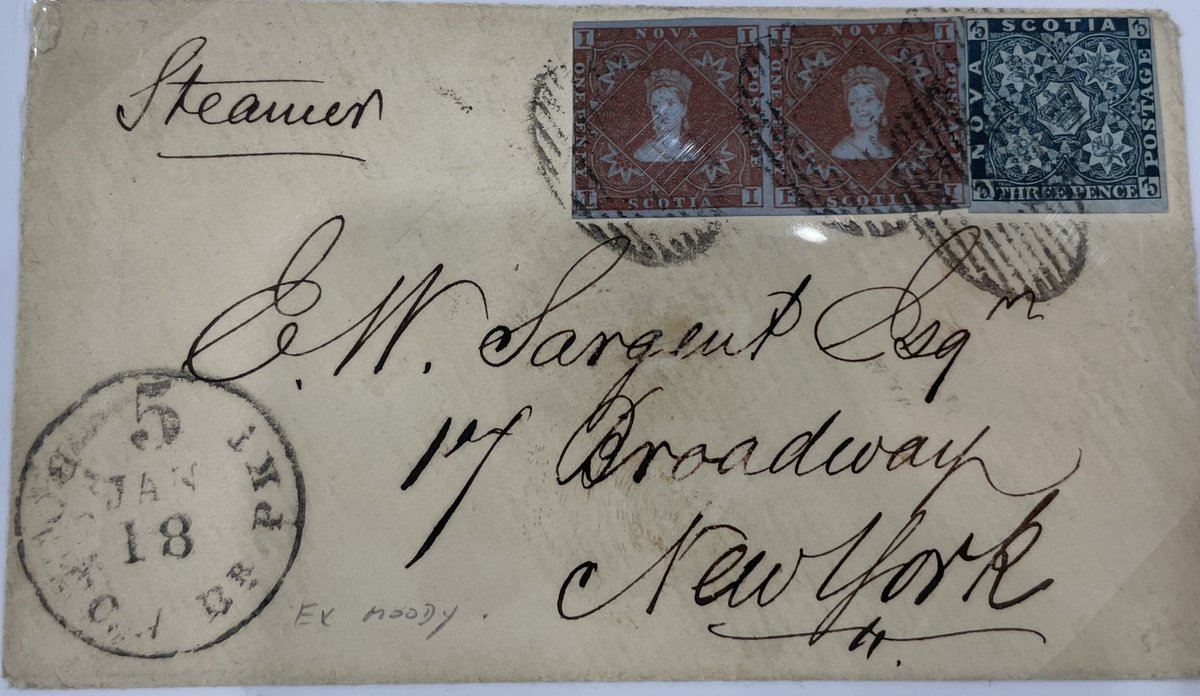 Steamer
I NOVA I
ONE PENNY
POSTAGE
I SCOTIA I
I NOVA I
ONE PENNY
POSTAGE
SCOTIA I
3 SCOTIA 3
NOVA
POSTAGE
3 THREE PENCE 3
E. W. Sargent Esqr
17 Broadway
New York
5
JAN
18
BOSTON
BR PKT
Ex MOODY.